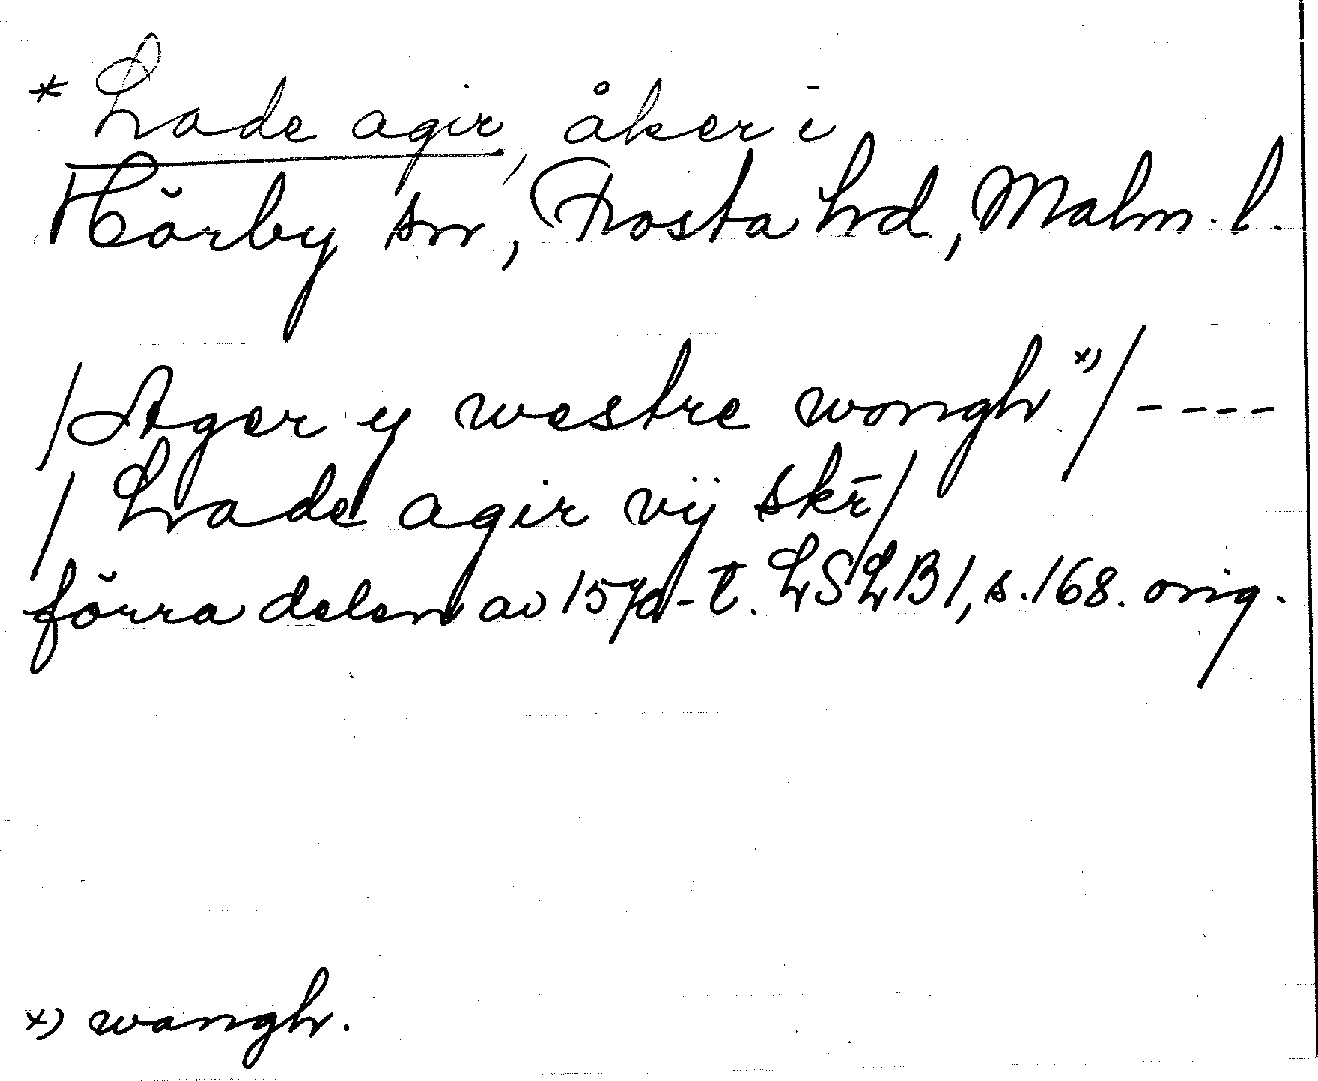 * Lade agir, åker i
Hörby sn, Frosta hd, Malm. l.
/Ager y westre wongh *)/ ----
/ Lade agir vij skr̄/
förra delen av 1570-t. LSLB1, s. 168. orig.
*) wangh.